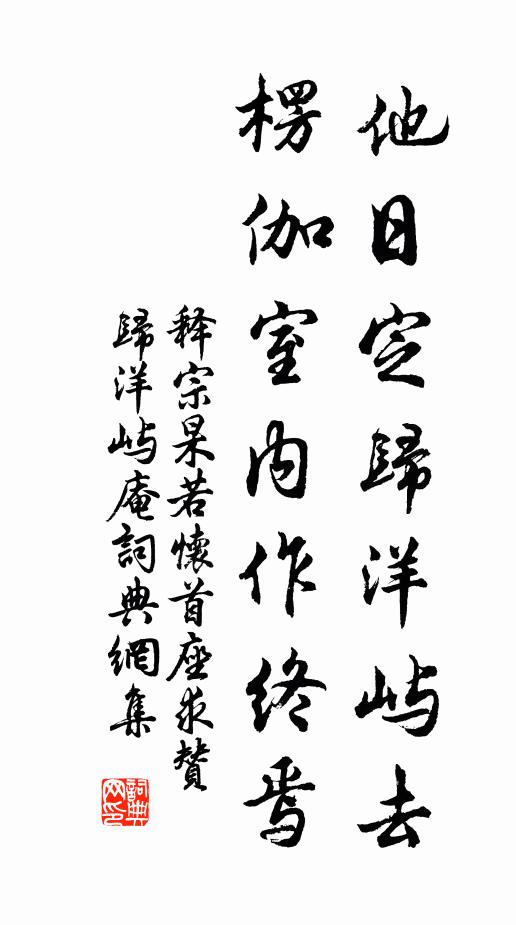 他日定歸洋屿去
楞伽室内作终焉
释宗杲若懷首座求贊
歸洋屿庵詞典網集
詞典网印